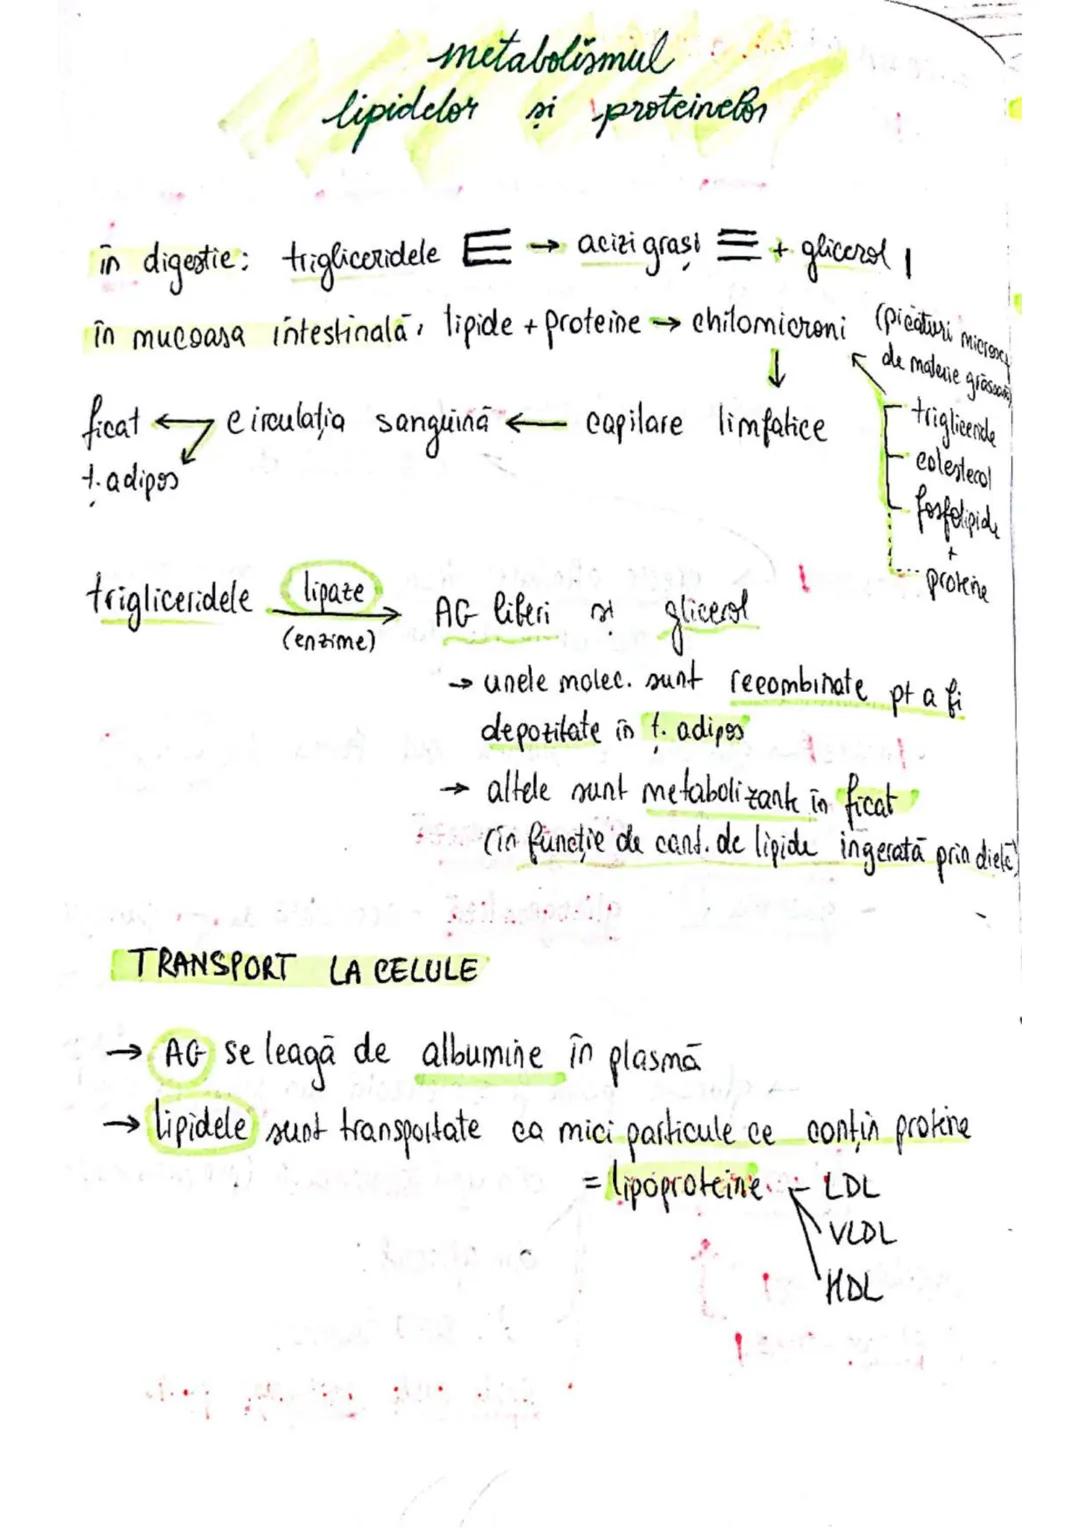 metabolismul
lipidelor și proteinelor
în digestie: trigliceridele → acizi grași + glicerol
în mucoasa intestinală: lipide + proteine → chilomicroni (picături microsc
de materie grăsoasă)
trigliceride
colesterol
fosfolipide
+
proteine
↓
ficat ← circulația sanguină ← capilare limfatice
t. adipos
trigliceridele lipaze → AG liberi și glicerol
(enzime)
→ unele molec. sunt recombinate pt a fi
depozitate în t. adipos
→ altele sunt metabolizante în ficat
(în funcție de cant. de lipide ingerată prin dietă)
TRANSPORT LA CELULE
→ AG se leagă de albumine în plasmă
→ lipidele sunt transportate ca mici particule ce conțin proteine
= lipoproteine - LDL
VLDL
HDL